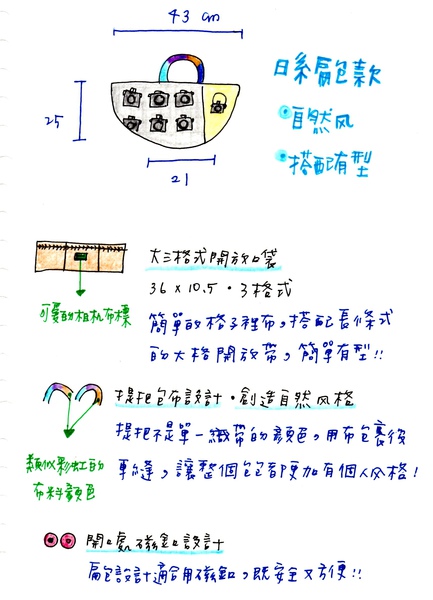 43 cm
日系扁包款
自然风
搭配有型
25
21
大三格式開放口袋
36 x 10.5・3格式
可愛的相机布標
簡單的格子裡布,搭配長條式
的大格開放帶,簡單有型!!
提把包布設計・創造自然风格
提把不是單一織帶的顏色,用布包裹後
類似彩虹的
布料顏色
車縫,讓整個包包都更加有個人风格!
開口處磁釦設計
扁包設計適合用磁釦,既安全又方便!!